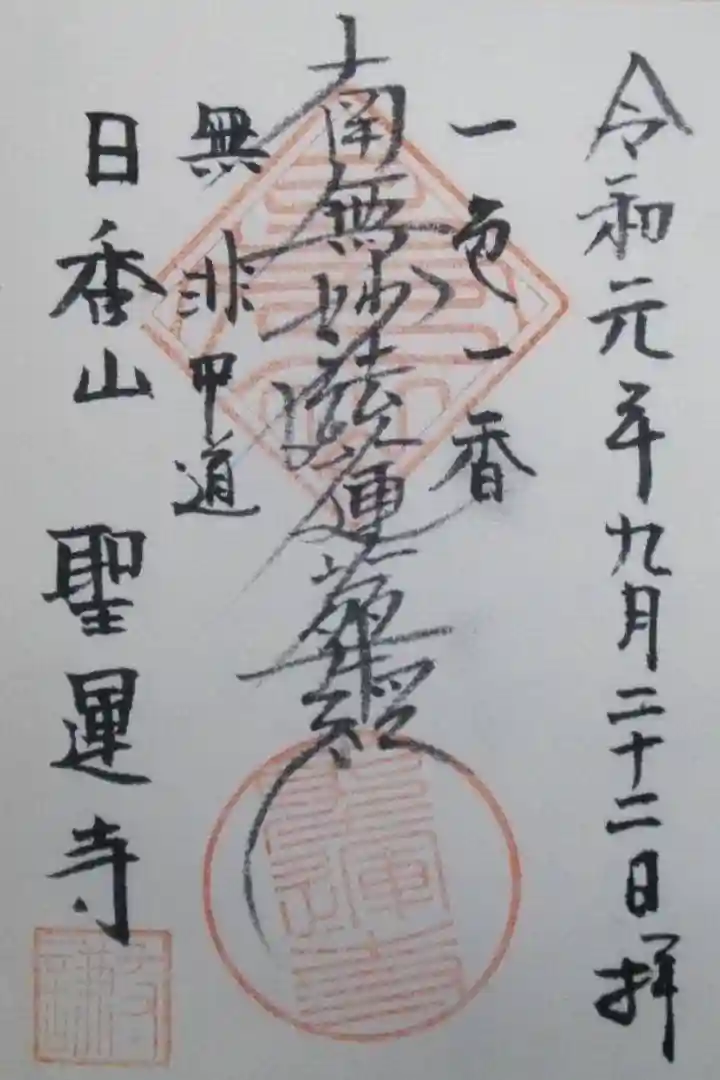 令和元年九月二十二日拝
一色一香
南無妙法蓮華経
無非中道
日香山 聖運寺